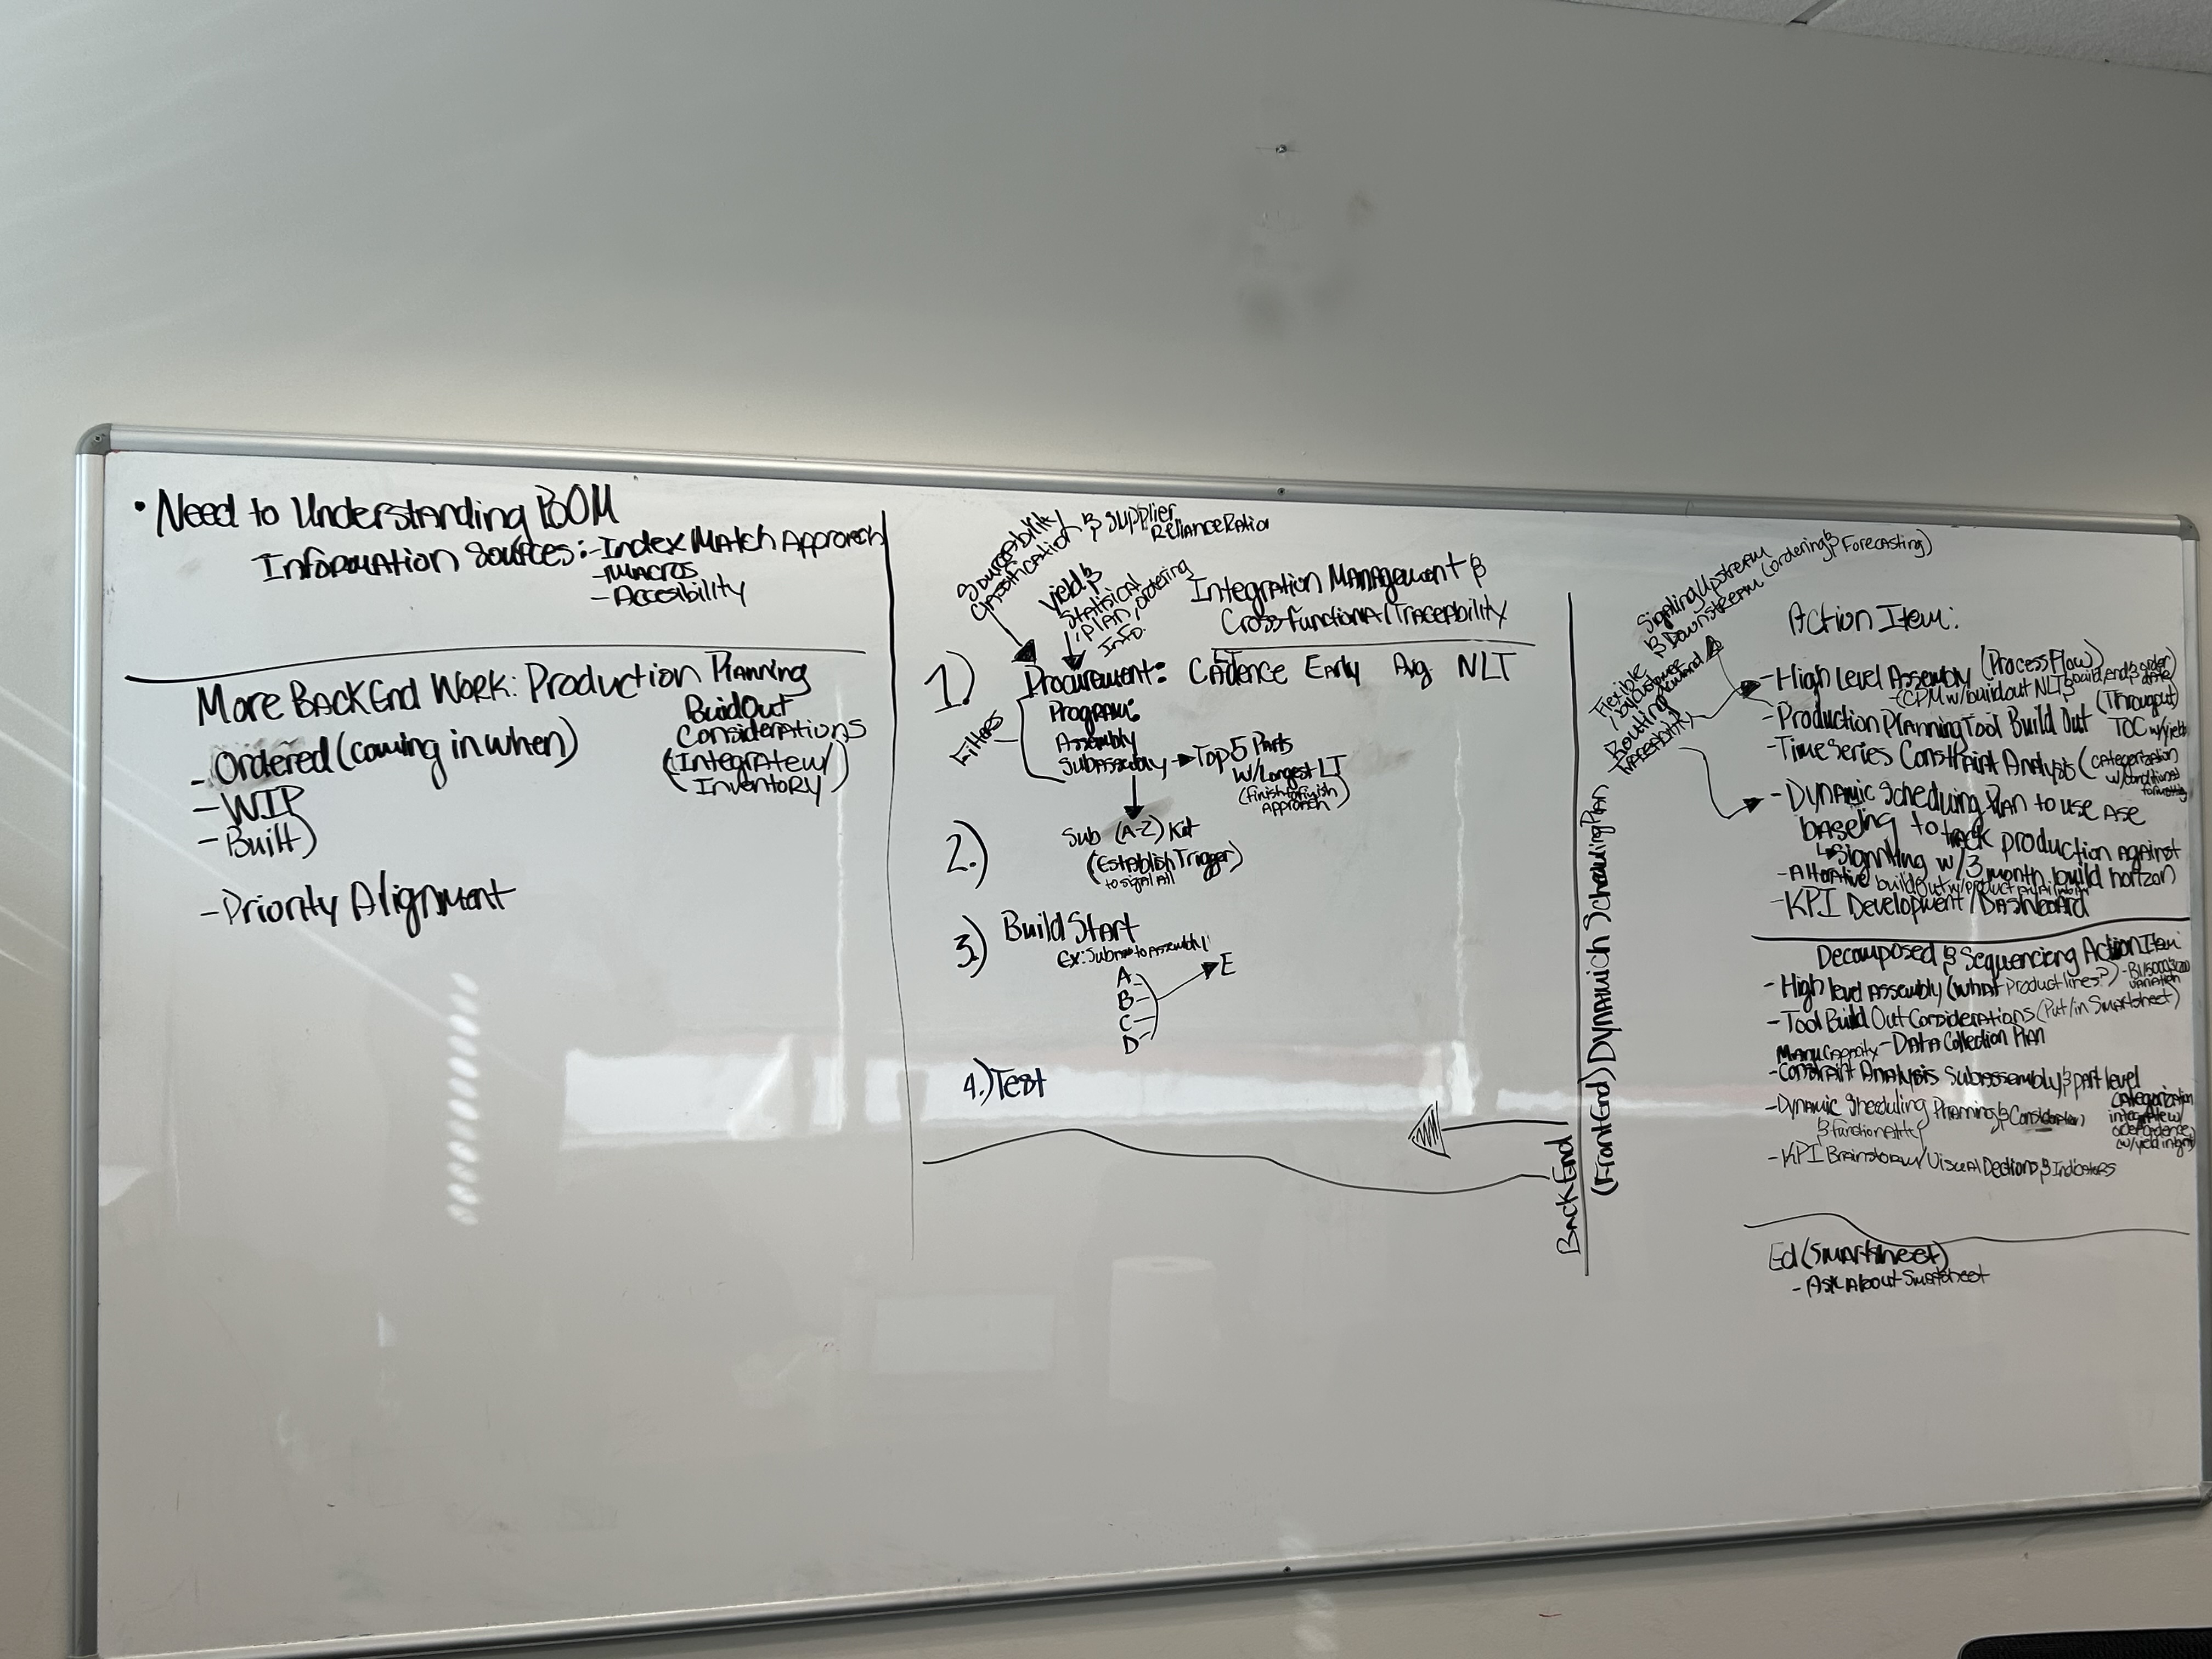 • Need to Understanding BOM
Information Sources: - Index Match Approach
- Macros
- Accesibility
More BackEnd Work: Production Planning
BuildOut
Considerations
(Integrate w/
Inventory)
- Ordered (coming in when)
- WIP
- Built)
- Priority Alignment
Sourceability
Classification & Supplier
Reliance Ratio
Yield &
Statistical
Plan, ordering
Info.
Integration Management &
Cross-Functional Traceability
1.) Procurement: Cadence Early Avg. NLT
Filters
Program:
Assembly
Subassembly → Top 5 Parts
w/ Longest LT
(Finish to Finish
Approach)
2.) Sub (A-Z) Kit
(Establish Trigger)
to signal all
3.) Build Start
Ex: Subm to Assembly 1
A
B
C
D
E
4.) Test
BackEnd
(FrontEnd) Dynamich Scheduling Plan
Signaling Upstream
& Downstream (ordering & Forecasting)
Flexible
by customer
Routing demand
Traceability
Action Item:
- High Level Assembly (Process Flow)
- (CPM w/ buildout NLT & build, end & order date)
- Production Planning Tool Build Out (Througput)
TOC w/ yield
- Time Series Constraint Analysis (categorization
w/ conditional
formatting
- Dynamic Scheduling Plan to use ASE
baseing to track production against
↳ Signaling w/ 3 month build horizon
- Alterative buildout w/ product
- KPI Development / Dashboard
Decomposed & Sequencieng Action Item
- High level Assembly (What Product lines?)
variation
- Tool Build Out Considerations (Put/in Smartsheet)
Manu Capacity - Data Collection Plan
- Constraint Analysis Subassembly & part level
categorization
integrate w/
dependence
- Dynamic Sheduling Planning &
& Functionality
- KPI Brainstorm/Visual Dections & Indicators
Ed (Smartsheet)
- Ask About Smartsheet